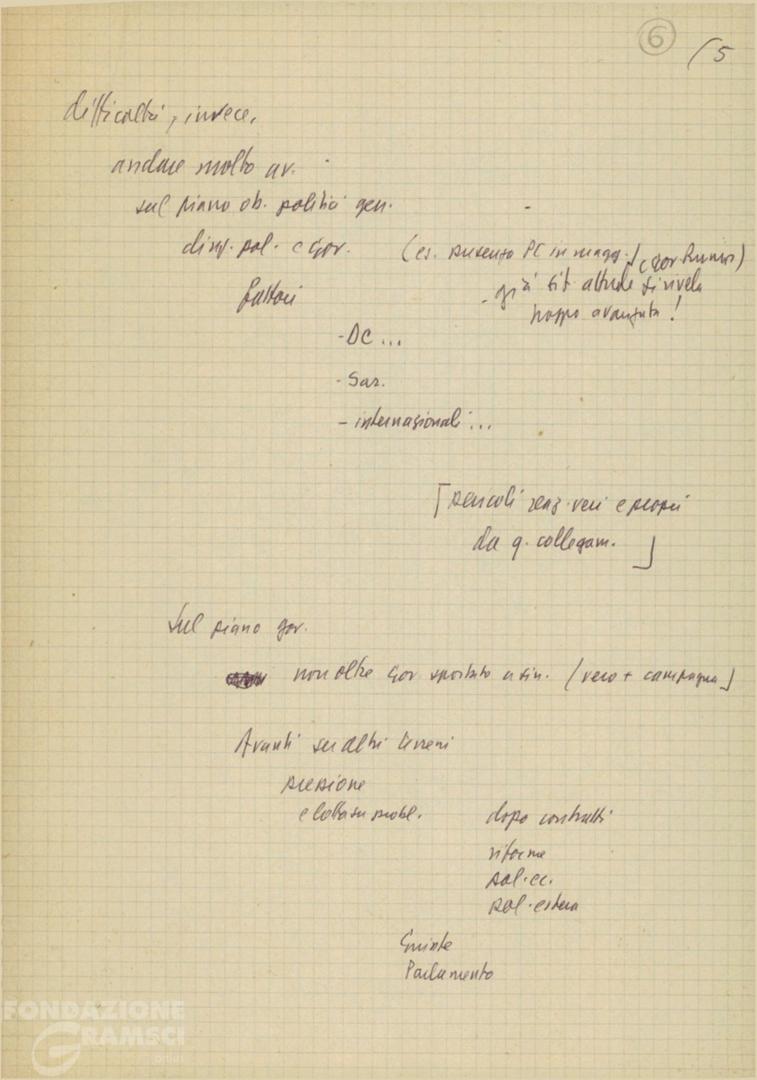 6
5
difficoltà, invece,
andare molto av.
sul piano ob. politici gen.
dirig. pol. e gov. (es. presenza PC in magg.) (gov Rumor)
fattori
- già sit. attuale si rivela
troppo avanzata!
- DC ...
- Sar.
- internazionali ...
[pericoli veri e propri
da q. collegam. ]
Sul piano gov.
non oltre gov spostato a sin. (vero + campagna)
Avanti su altri terreni
pressione
e lotta su probl.
dopo contratti
riforme
pol. ec.
pol. estera
Giunte
Parlamento
FONDAZIONE
GRAMSCI
onlus